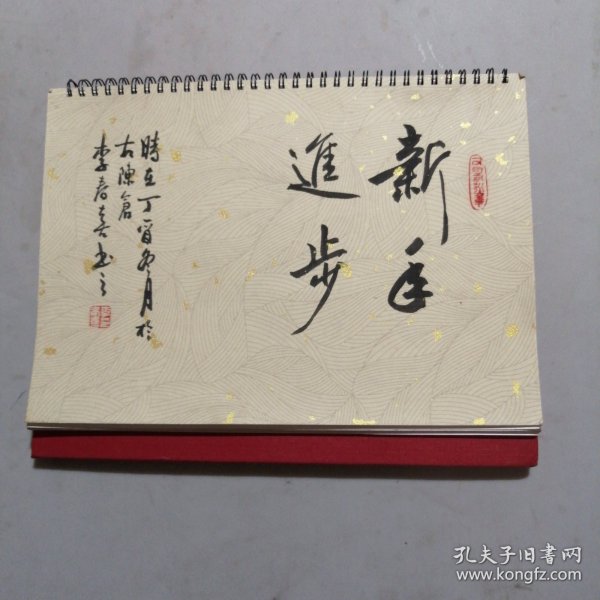 新年
進步
時在丁酉冬月於
古陳倉
李春喜书之
孔夫子旧书网
www.kongfz.com